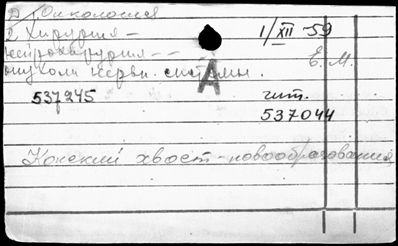 2) Онкология
2 Хирургия - 1/XII - 59
нейрохирургия - -
опухоли нервн. системы. Е. М.
А
537245 чит.
537044
Конский хвост - новообразования